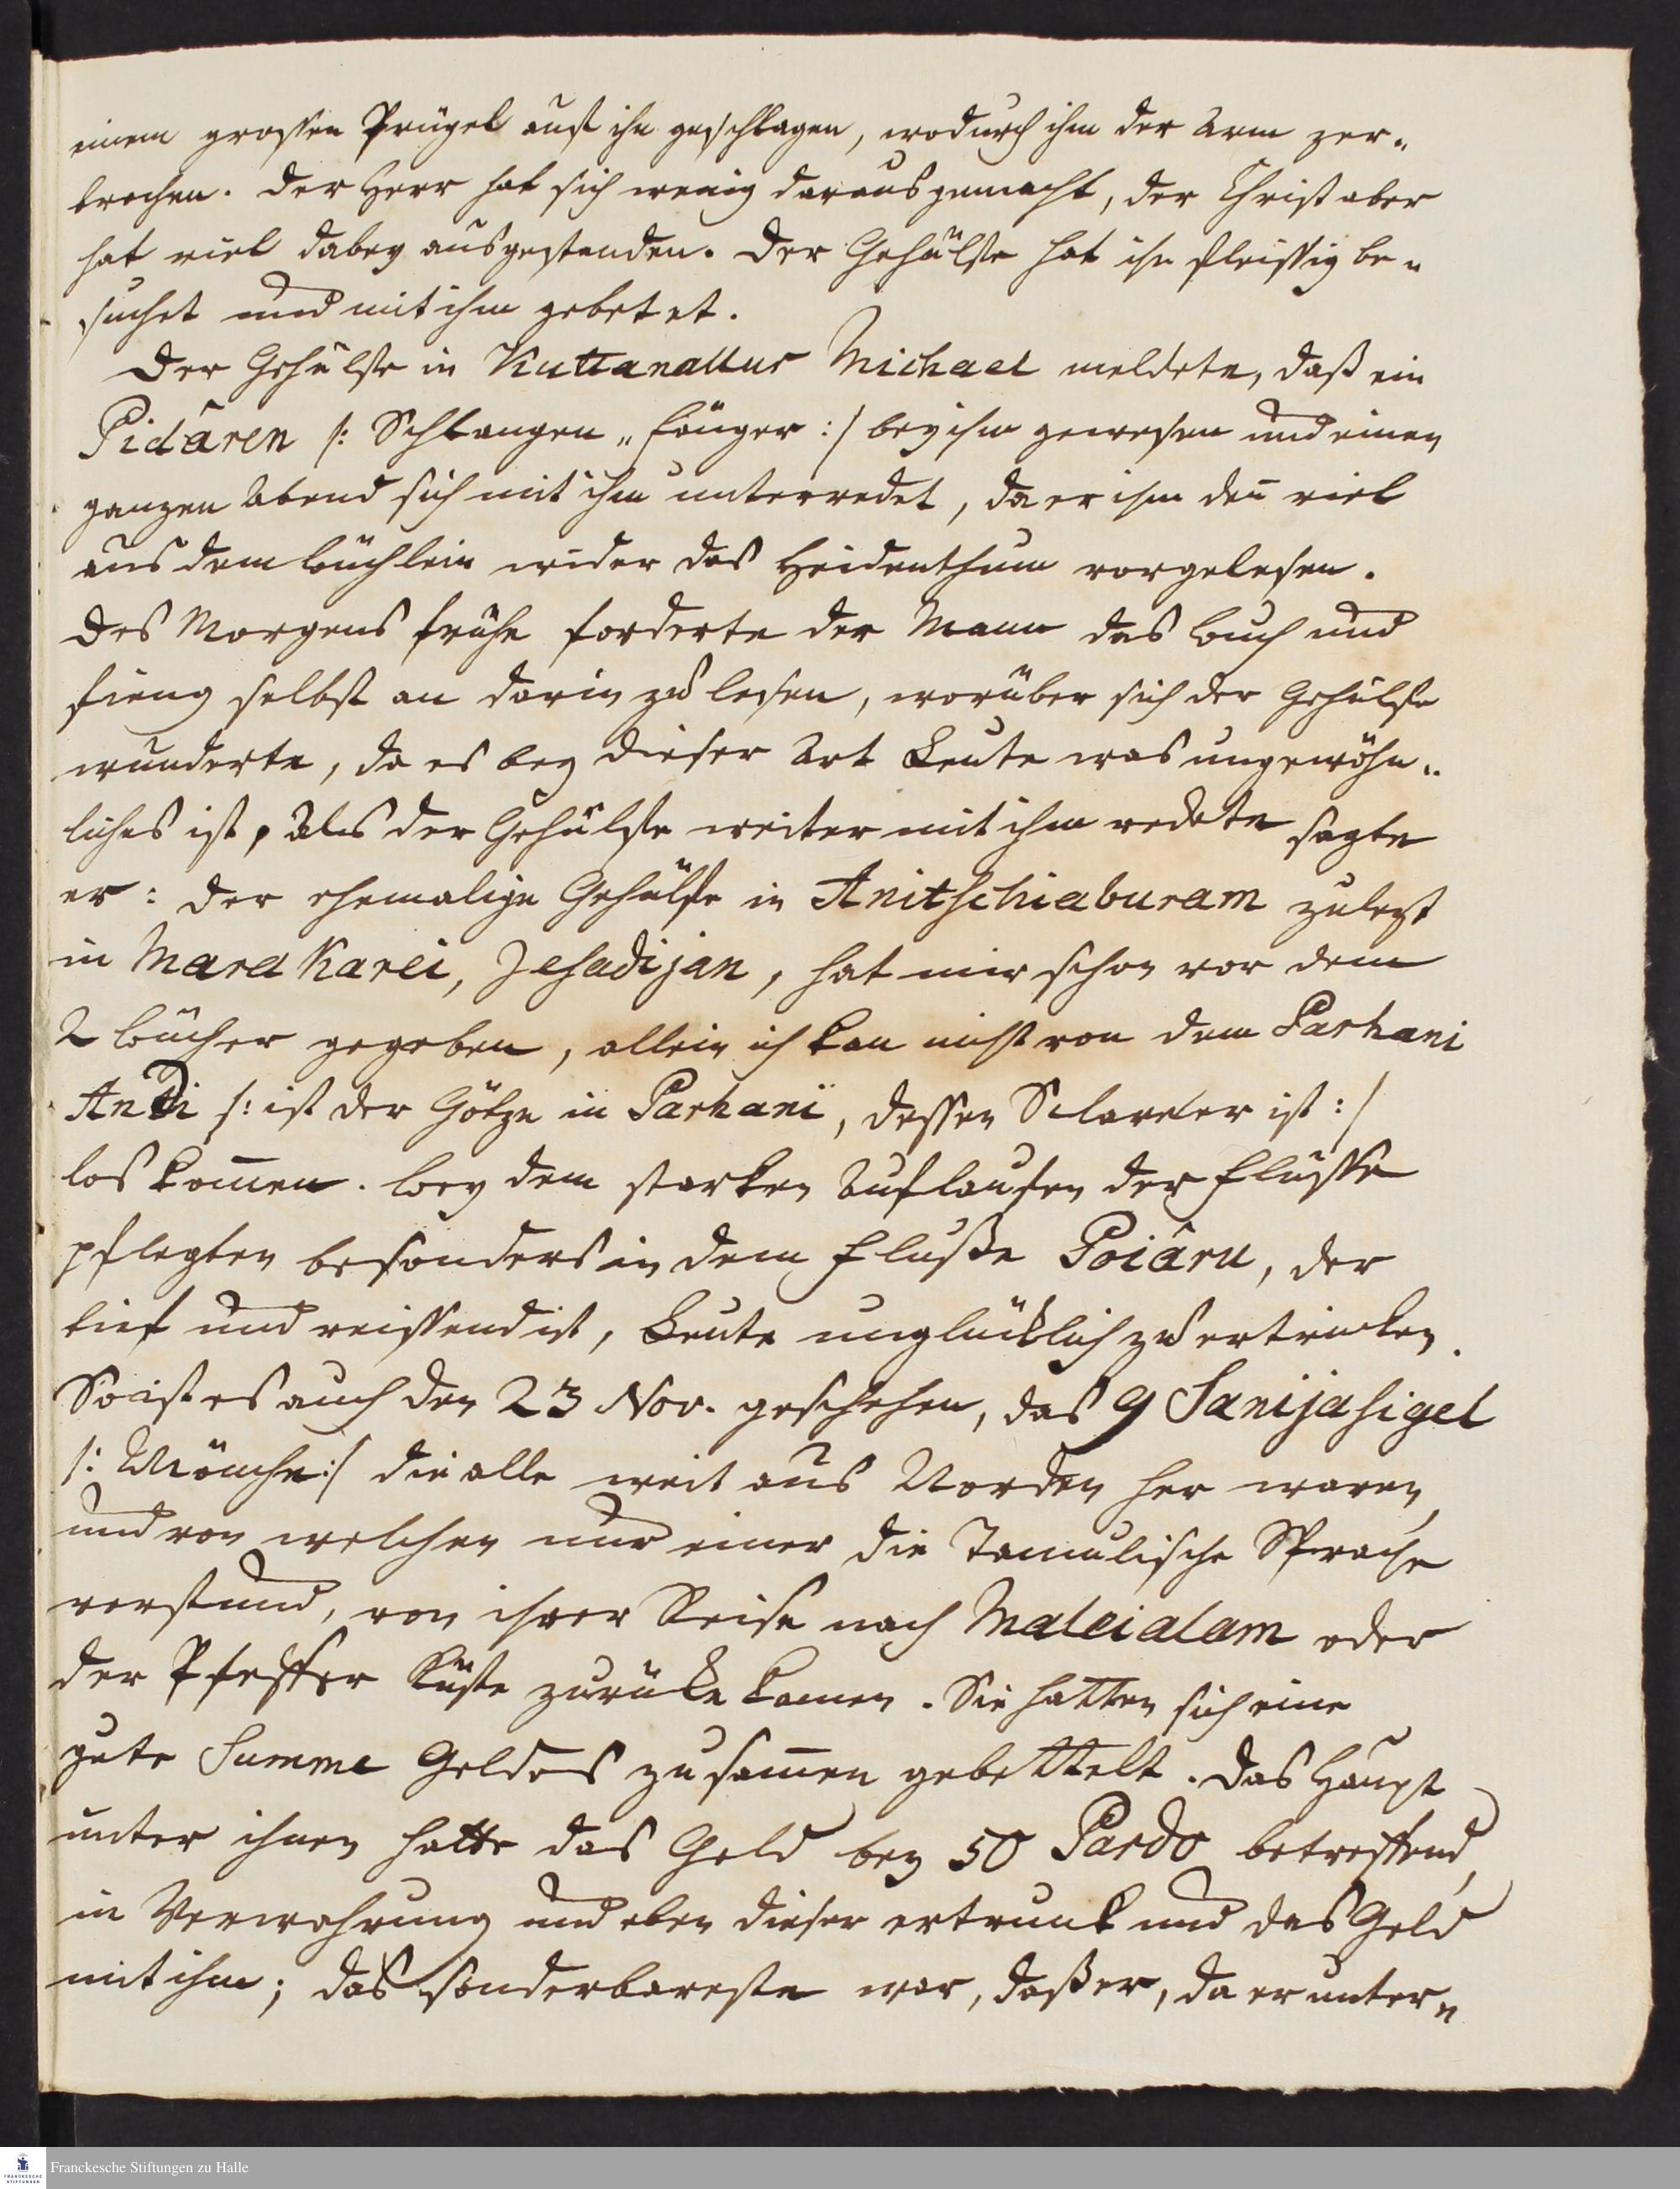 einem grossen Prügel auf ihn geschlagen, wodurch ihm der Arm zer„
brochen. Der Herr hat sich wenig daraus gemacht, der Christ aber
hat viel dabey ausgestanden. Der Gehülfe hat ihn fleissig be„
suchet und mit ihm gebetet.
Der Gehülfe in Kuttanallur Michael meldete, daß ein
Pidâren /: Schlangen„fänger :/ bey ihm gewesen und einen
ganzen Abend sich mit ihm unterredet, da er ihm deñ viel
aus dem Büchlein wider das Heidenthum vorgelesen.
Des Morgens frühe forderte der Mann das Buch und
fieng selbst an darin zu lesen, worüber sich der Gehülfe
wunderte, da es bey dieser Art Leute was ungewöhn„
liches ist, Als der Gehülfe weiter mit ihm redete sagte
er: der ehemalige Gehülfe in Anitschiaburam zulezt
in Marakarei, Jesadijan, hat mir schon vor dem
2 Bücher gegeben, allein ich kan nicht von dem Parhani
Andi /: ist der Götze in Parhani, dessen Sclave er ist :/
los kom̄en. Bey dem starken Auflaufen der Flüsse
pflegten besonders in dem Fluße Poiâru, der
tief und reissend ist, Leute unglücklich zu ertrincken.
So ist es auch den 23 Nov. geschehen, das 9 Sanijasigel
/: Mönche :/ die alle weit aus Norden her waren,
und von welchen nur einer die Tamulische Sprache
verstund, von ihrer Reise nach Maleialam oder
der Pfeffer Küste zurücke kamen. Sie hatten sich eine
gute Summe Geldes zusam̄en gebettelt. Das Haupt
unter ihnen hatte das Geld bey 50 Pardo betreffend,
in Verwahrung und eben dieser ertrunk und das Geld
mit ihm; das sonderbareste war, daß er, da er unter„
Franckesche Stiftungen zu Halle
FRANCKESCHE
STIFTUNGEN